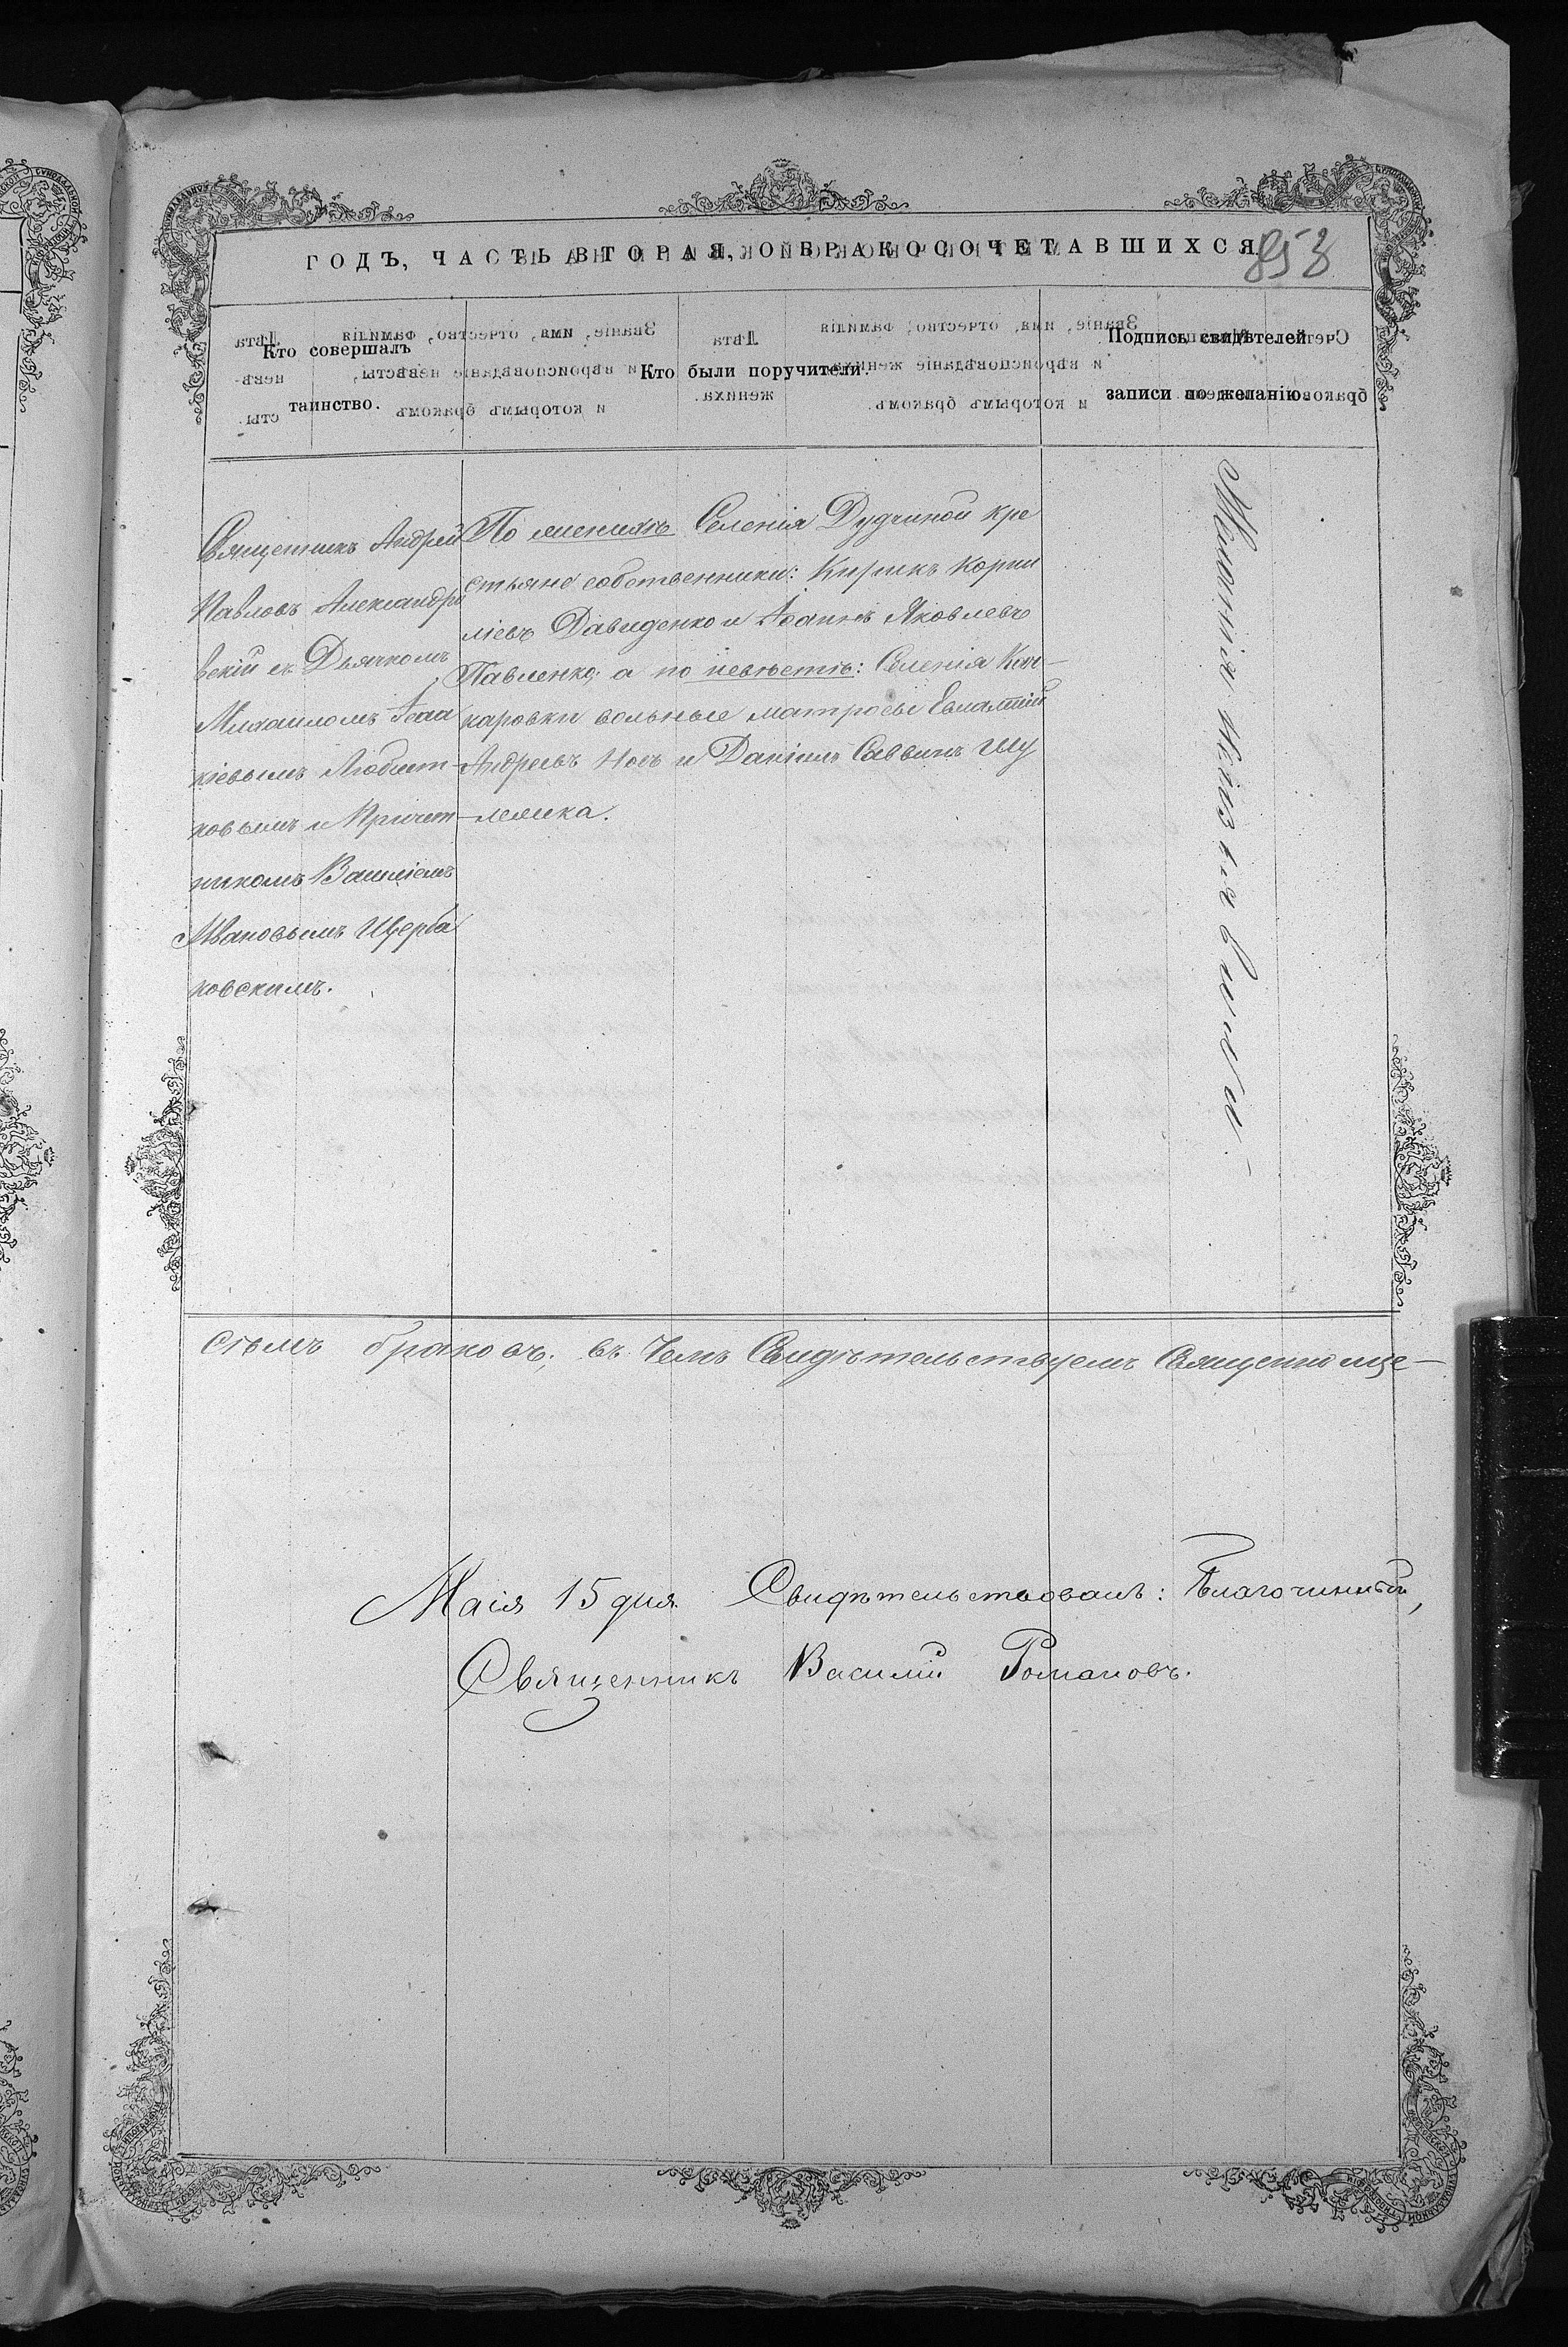 ГОДЪ, ЧАСТЬ ВТОРАЯ, О БРАКОСОЧЕТАВШИХСЯ.
853
Кто совершалъ
таинство.
Кто были поручители.
Подпись свидѣтелей
записи по желанію.
Священникъ Андрей
Павловъ Александро
вскій съ Дьячкомъ
Михаиломъ Іоаа
кіевымъ Любит
ковымъ и Причет
никомъ Василіемъ
Ивановымъ Щерба
ковскимъ.
По женихѣ Селенія Дудчиной кре
стьяне собственники: Кирикъ Корни
ліевъ Давиденко и Іоаннъ Яковлевъ
Павленко, а по невѣстѣ: Селенія Кач-
каровки вольные матросы Евлампій
Андреевъ Носъ и Даніилъ Саввинъ Шу
лежка.
Сѣмъ браковъ. въ Чемъ Свидѣтельствуемъ Священно це-
Маія 15 дня. Свидѣтельствовалъ: Благочинный,
Священникъ Василій Романовъ.